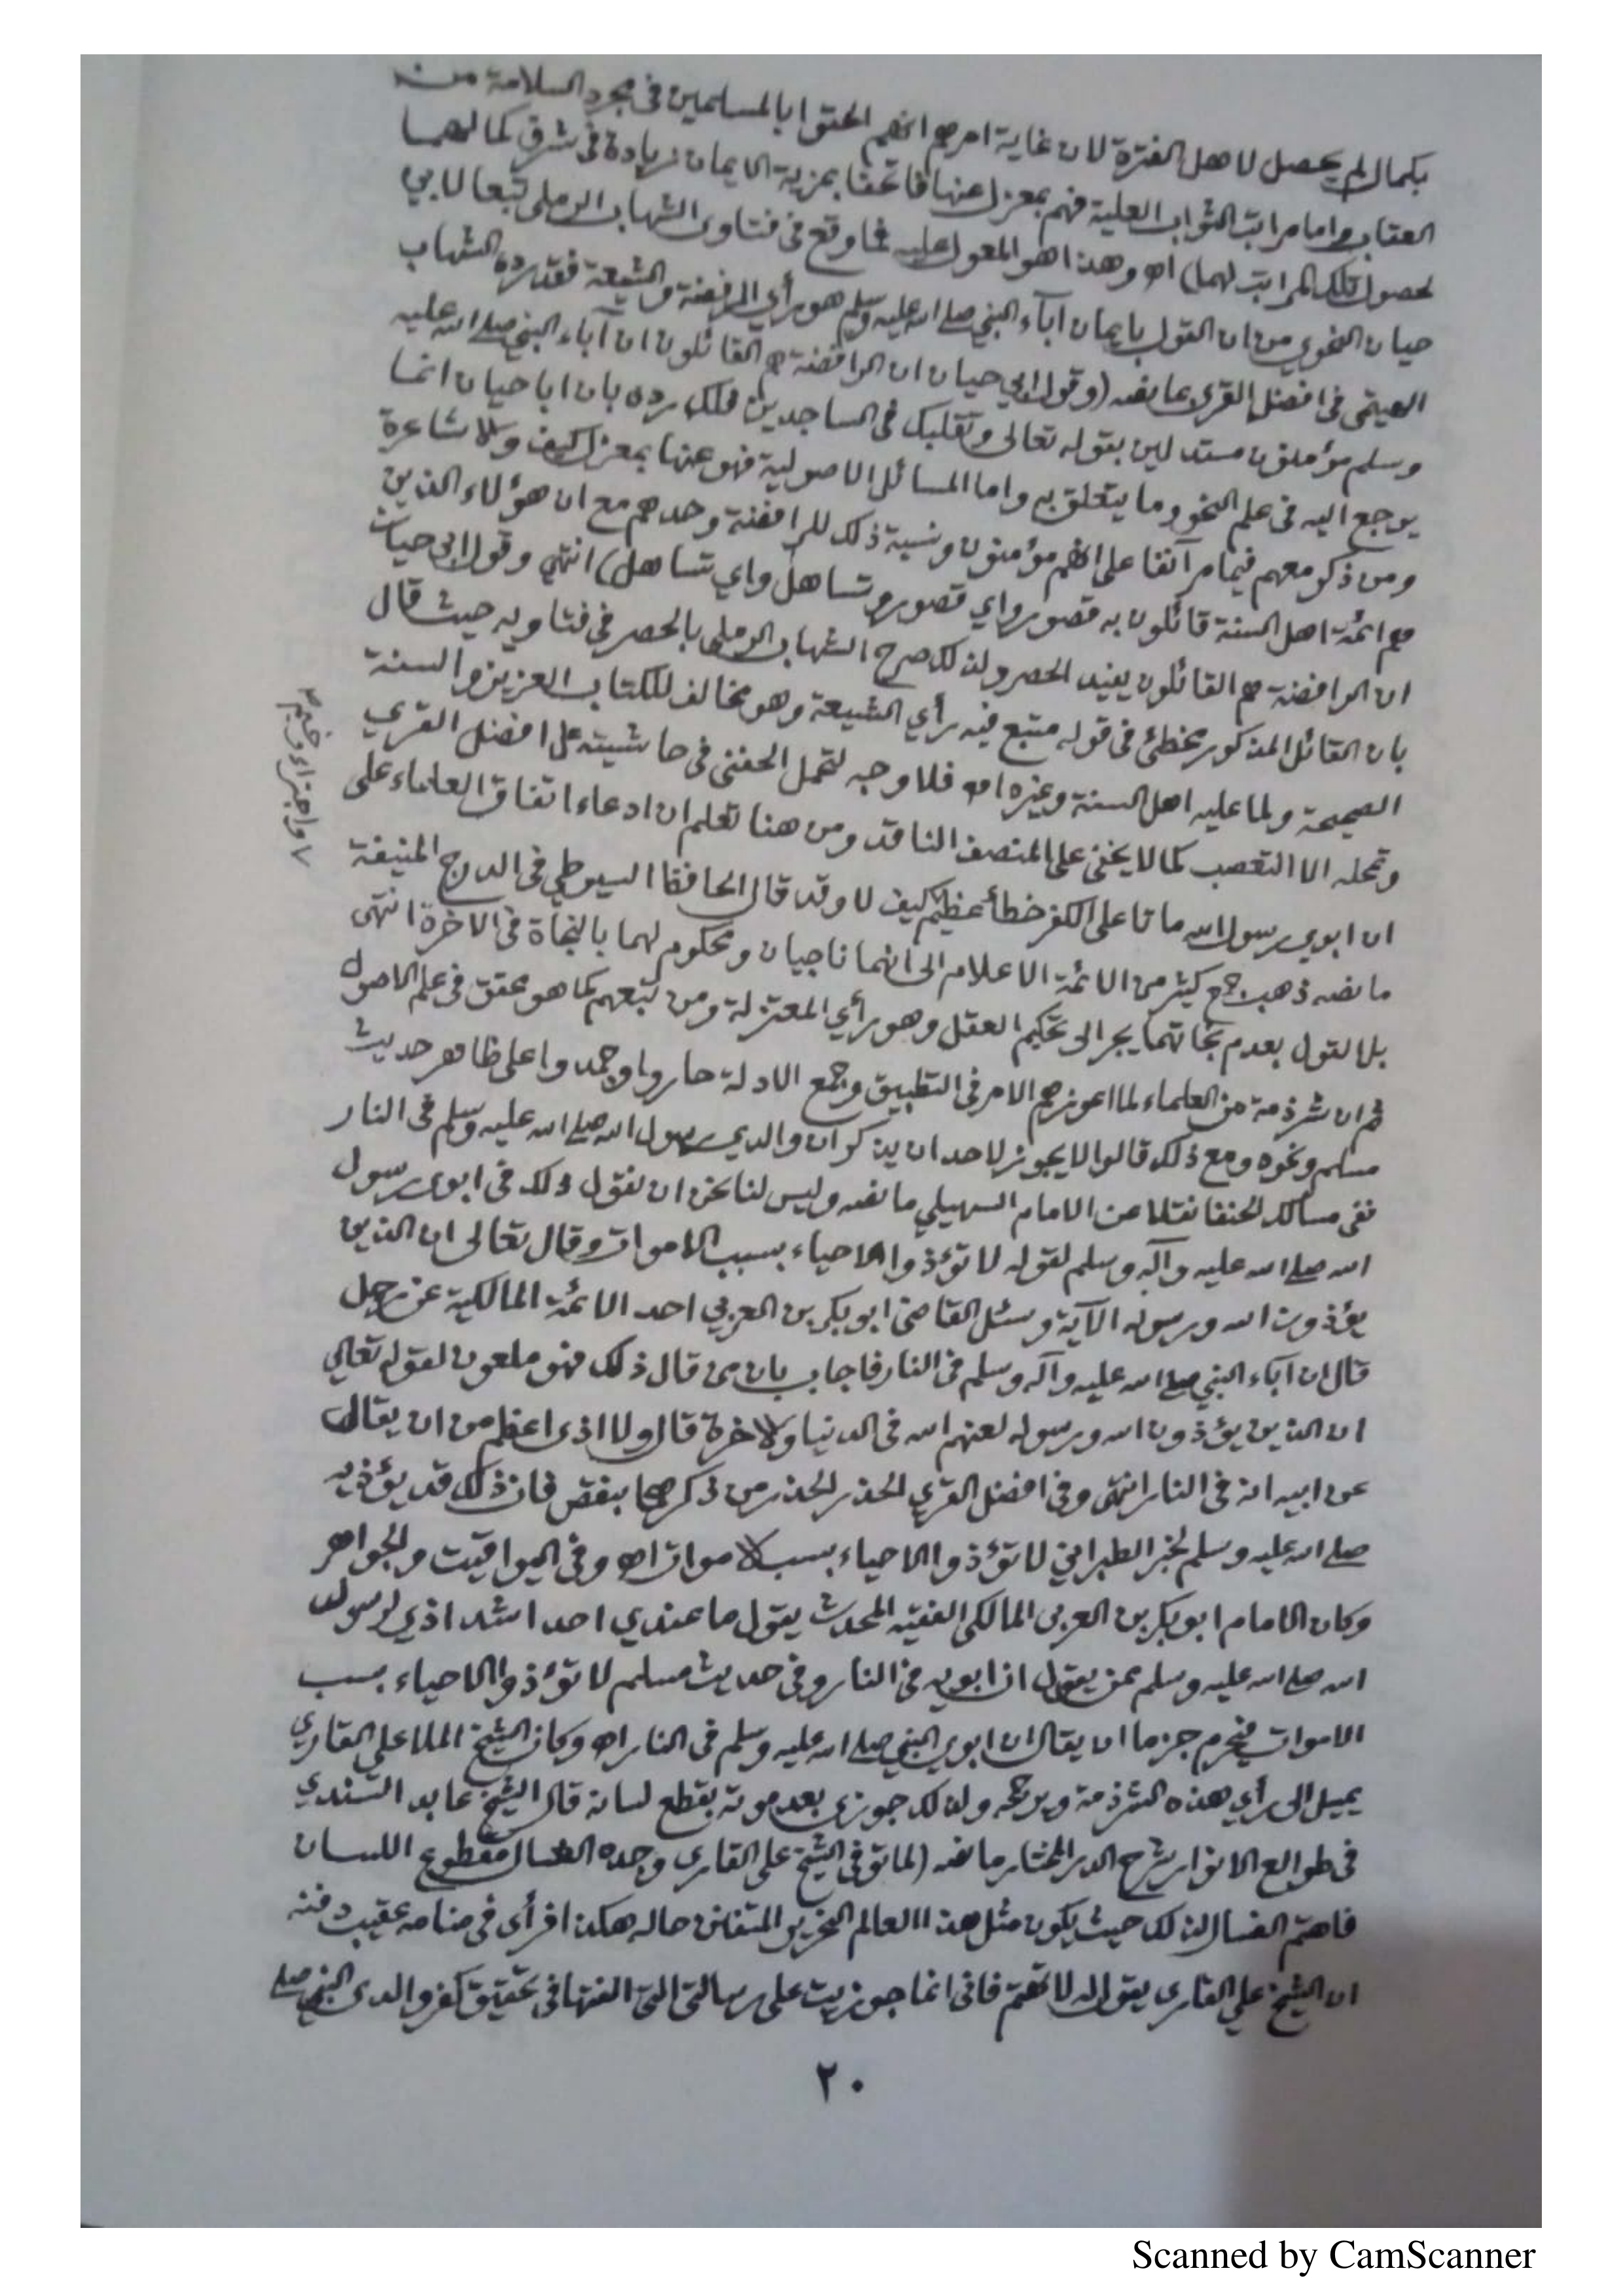 بكمال لم يحصل لاهل الفترة لان غاية امرهم انهم الحقوا بالمسلمين في مجرد السلامة من
العقاب واما مراتب الثواب العلية فهم بمعزل عنها فاتحفا بمزية الايمان زيادة في شرق كمالهما
لحصول تلك المراتب لهما) اه وهذا هو المعول عليه فما وقع في فتاوى الشهاب الرملي تبعا لابي
حيان النحوي من ان القول بايمان آباء النبي صلى الله عليه وسلم هو رأي الرفضة والشيعة فقد رده الشهاب
الهيتمي في افضل القرى بما نصه (وقول ابي حيان ان الرافضة هم القائلون ان آباء النبي صلى الله عليه
وسلم مؤمنون مستدلين بقوله تعالى وتقلبك في الساجدين فلك رده بان ابا حيان انما
يرجع اليه في علم النحو وما يتعلق به واما المسائل الاصولية فهو عنها بمعزل كيف والاشاعرة
ومن ذكر معهم فيما مر آنفا على انهم مؤمنون ونسبة ذلك للرافضة وحدهم مع ان هؤلاء الذين
هم ائمة اهل السنة قائلون به قصور واي قصور وتساهل واي تساهل) انتهى وقول ابي حيان
ان الرافضة هم القائلون يفيد الحصر ولذلك صرح الشهاب الرملي بالحصر في فتاويه حيث قال
بان القائل المذكور مخطئ في قوله متبع فيه رأي الشيعة وهو مخالف للكتاب العزيز والسنة
الصحيحة ولما عليه اهل السنة وغيره اه فلا وجه لتحمل الحفني في حاشيته على افضل القري
وتمحله الا التعصب كما لا يخفى على المنصف الناقد ومن هنا تعلم ان ادعاء اتفاق العلماء على
ان ابوي رسول الله ماتا على الكفر خطأ عظيم كيف لا وقد قال الحافظ السيوطي في الدرج المنيفة
ما نصه ذهب جمع كثير من الائمة الاعلام الى انهما ناجيان ومحكوم لهما بالنجاة في الآخرة انتهى
بل القول بعدم نجاتهما يجر الى تحكيم العقل وهو رأي المعتزلة ومن تبعهم كما هو محقق في علم الاصول
ثم ان شرذمة من العلماء لما اعوزهم الامر في التطبيق وجمع الادلة حاروا وجمدوا على ظاهر حديث
مسلم ونحوه ومع ذلك قالوا لا يجوز لاحد ان يذكر ان والدي رسول الله صلى الله عليه وسلم في النار
ففي مسالك الحنفا نقلا عن الامام السهيلي ما نصه وليس لنا نحن ان نقول ذلك في ابوى رسول
الله صلى الله عليه وآله وسلم لقوله لا تؤذوا الاحياء بسبب الاموات وقال تعالى ان الذين
يؤذون الله ورسوله الآية وسئل القاضي ابو بكر بن العربي احد الائمة المالكية عن رجل
قال ان آباء النبي صلى الله عليه وآله وسلم في النار فاجاب بان من قال ذلك فهو ملعون لقوله تعالى
ان الذين يؤذون الله ورسوله لعنهم الله في الدنيا والاخرة قال ولا اذى اعظم من ان يقال
عن ابيه انه في النار انتهى وفي افضل القري الحذر الحذر من ذكرهما بنقص فان ذلك قد يؤذيه
صلى الله عليه وسلم لخبر الطبراني لا تؤذوا الاحياء بسب الاموات اه وفي اليواقيت والجواهر
وكان الامام ابو بكر بن العربي المالكي الفقيه المحدث يقول ما عندي احد اشد اذي لرسول
الله صلى الله عليه وسلم ممن يقول ان ابويه في النار وفي حديث مسلم لا تؤذوا الاحياء بسب
الاموات فيحرم جزما ان يقال ان ابوي النبي صلى الله عليه وسلم في النار اه وكان الشيخ الملا علي القاري
يميل الى رأي هذه الشرذمة ويرجحه ولذلك جوزي بعد موته بقطع لسانه قال الشيخ عابد السندي
في طوالع الانوار شرح الدر المختار ما نصه (لما توفي الشيخ علي القاري وجده الغسال مقطوع اللسان
فاهتم الغسال لذلك حيث يكون مثل هذا العالم النحرير المتفنن حاله هكذا فرأى في منامه عقيب دفنه
ان الشيخ علي القاري يقول له لا تهتم فاني انما جوزيت على رسالتي التي الفتها في تحقيق كفر والدي النبي صلى
٢٠
Scanned by CamScanner